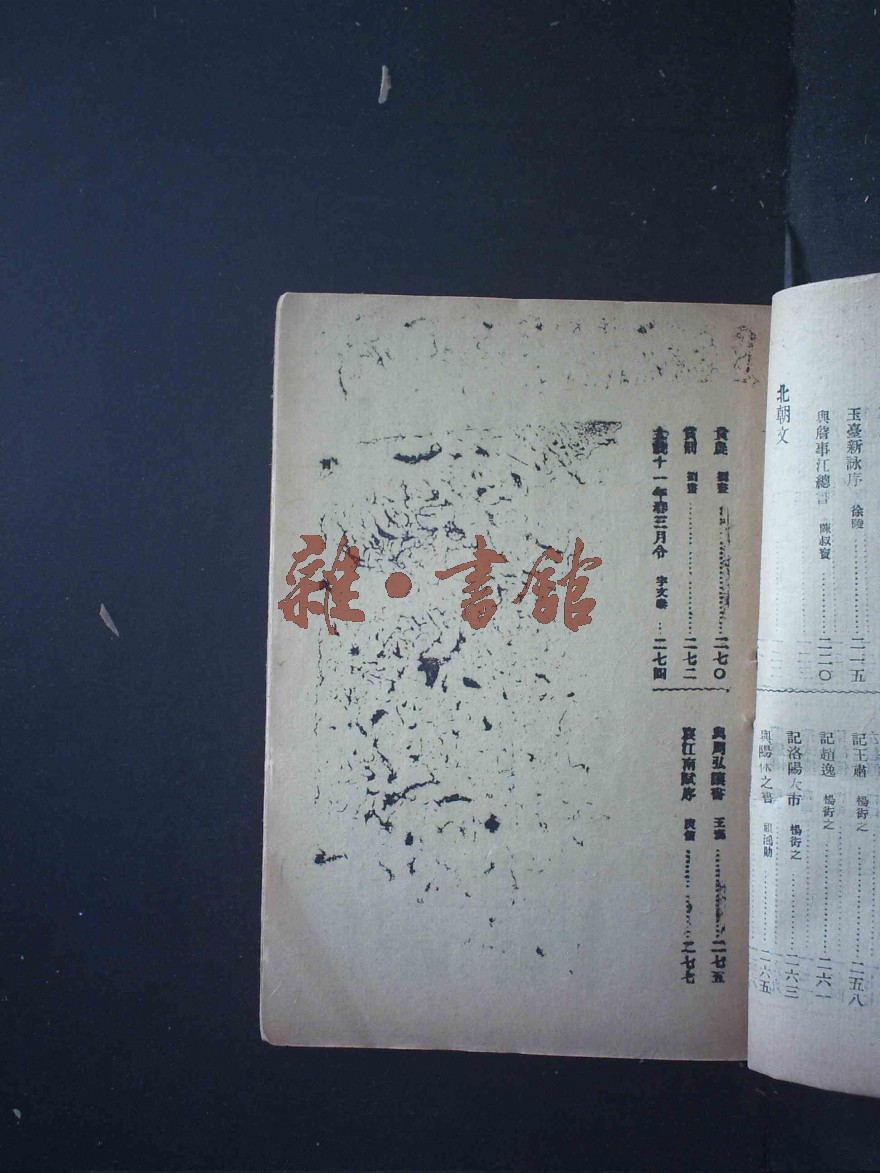 玉臺新詠序 徐陵 二一五
與詹事江總書 陳叔寶 二二〇
北朝文
記王肅 楊衒之 二五八
記趙逸 楊衒之 二六一
記洛陽大市 楊衒之 二六三
與陽休之書 祖鴻勳 二六五
貴農 劉晝 二七〇
賞罰 劉晝 二七二
大統十一年春三月令 宇文泰 二七四
與周弘讓書 王褒 二七五
哀江南賦序 庾信 二七七
雜·書館